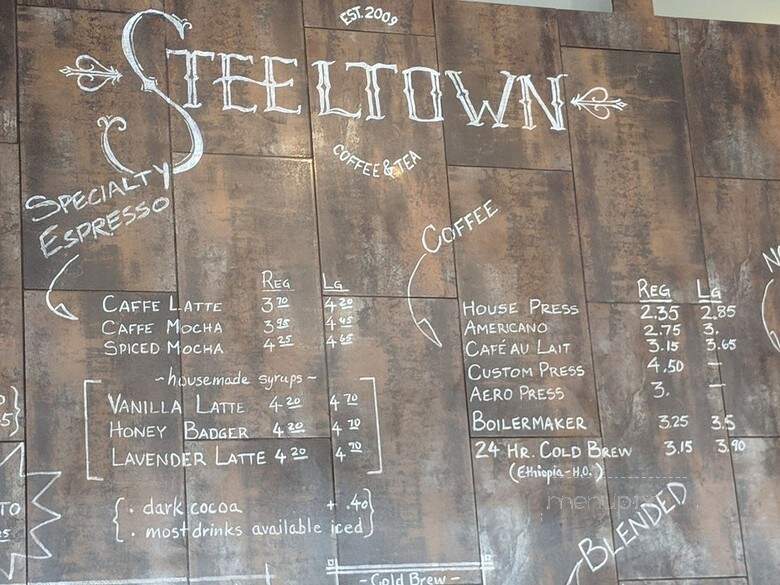 EST. 2009
STEELTOWN
COFFEE & TEA
SPECIALTY
ESPRESSO
REG LG
CAFFE LATTE 3.70 4.20
CAFFE MOCHA 3.95 4.45
SPICED MOCHA 4.25 4.65
~housemade syrups~
VANILLA LATTE 4.20 4.70
HONEY BADGER 4.20 4.70
LAVENDER LATTE 4.20 4.70
• dark cocoa + .40
• most drinks available iced
COFFEE
REG LG
HOUSE PRESS 2.35 2.85
AMERICANO 2.75 3.
CAFÉ AU LAIT 3.15 3.65
CUSTOM PRESS 4.50 —
AERO PRESS 3. —
BOILERMAKER 3.25 3.5
24 HR. COLD BREW 3.15 3.90
(Ethiopia-H.O.)
BLENDED
- Cold Brew -